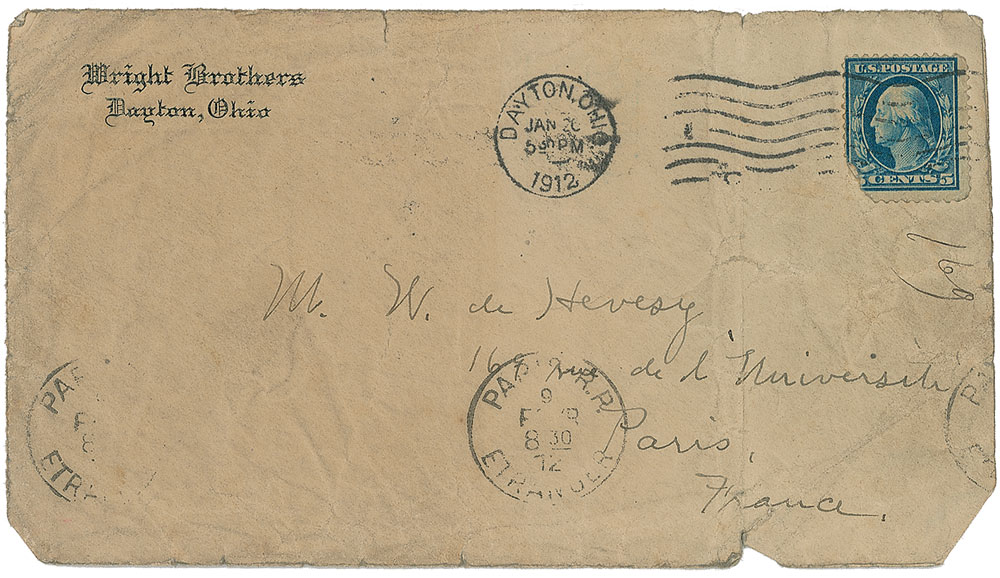 Wright Brothers
Dayton, Ohio
DAYTON, OHIO
JAN
5 PM
1912
U.S. POSTAGE
CENTS 5
169
M. W. de Hevesy
rue de l'Université
Paris,
France.
PA
ETRA
PARIS R.P.
9
8 30
12
ETRANGER